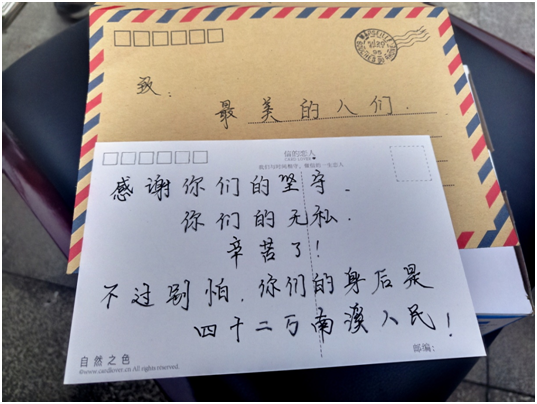 致：
最美的人们.
猫的恋人
CARE LOVER
感谢你们的坚守.
你们的无私.
辛苦了！
不过别怕.你们的身后是
四十二万南溪人民！
自然之色
邮编：